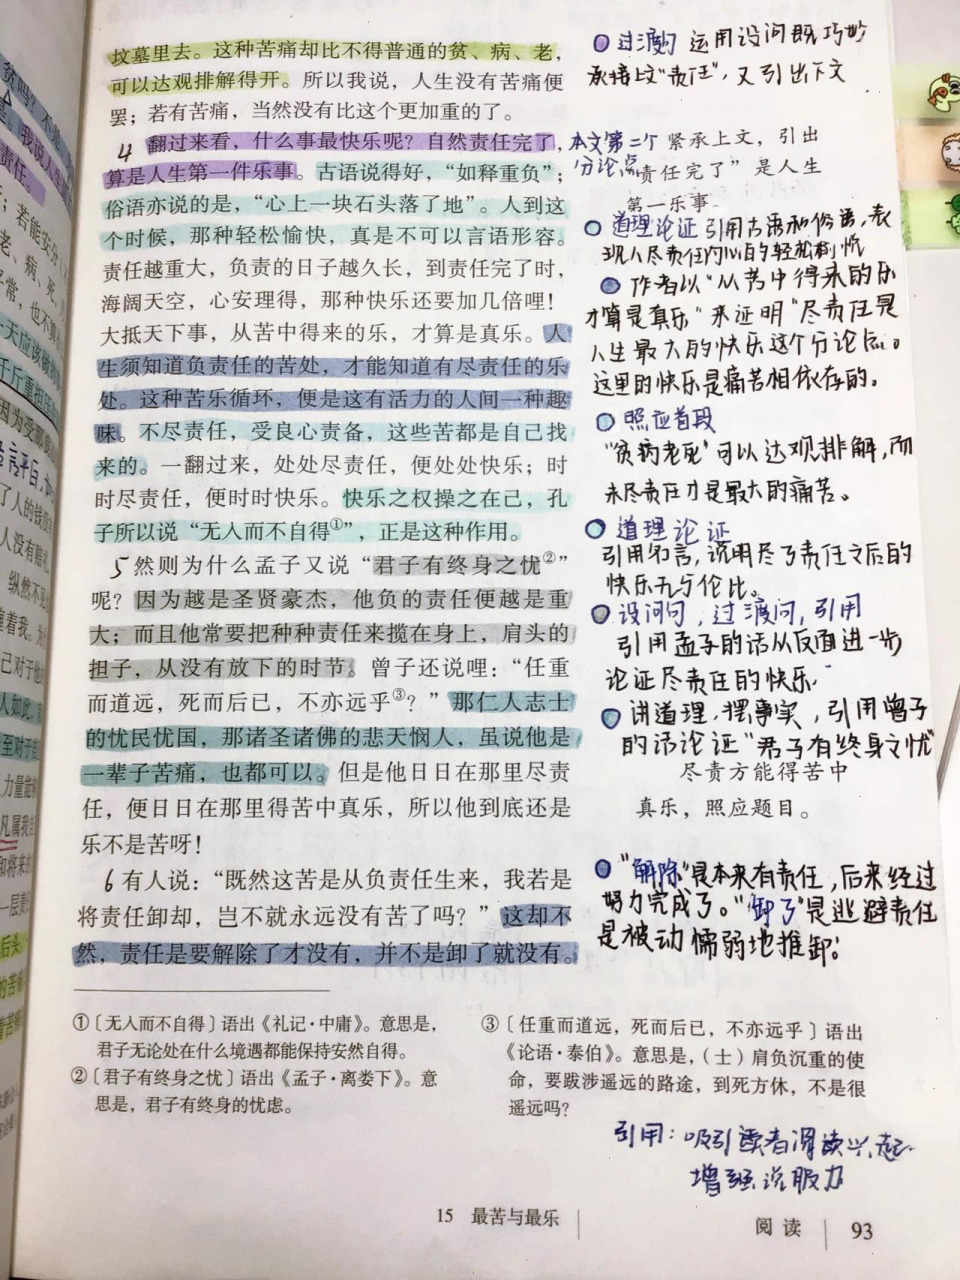 坟墓里去。这种苦痛却比不得普通的贫、病、老,
可以达观排解得开。所以我说,人生没有苦痛便
罢;若有苦痛,当然没有比这个更加重的了。
4 翻过来看,什么事最快乐呢?自然责任完了,
算是人生第一件乐事。古语说得好,“如释重负”;
俗语亦说的是,“心上一块石头落了地”。人到这
个时候,那种轻松愉快,真是不可以言语形容。
责任越重大,负责的日子越久长,到责任完了时,
海阔天空,心安理得,那种快乐还要加几倍哩!
大抵天下事,从苦中得来的乐,才算是真乐。人
生须知道负责任的苦处,才能知道有尽责任的乐
处。这种苦乐循环,便是这有活力的人间一种趣
味。不尽责任,受良心责备,这些苦都是自己找
来的。一翻过来,处处尽责任,便处处快乐;时
时尽责任,便时时快乐。快乐之权操之在己,孔
子所以说“无人而不自得①”,正是这种作用。
5 然则为什么孟子又说“君子有终身之忧②”
呢?因为越是圣贤豪杰,他负的责任便越是重
大;而且他常要把种种责任来揽在身上,肩头的
担子,从没有放下的时节。曾子还说哩:“任重
而道远,死而后已,不亦远乎③?”那仁人志士
的忧民忧国,那诸圣诸佛的悲天悯人,虽说他是
一辈子苦痛,也都可以。但是他日日在那里尽责
任,便日日在那里得苦中真乐,所以他到底还是
乐不是苦呀!
6 有人说:“既然这苦是从负责任生来,我若是
将责任卸却,岂不就永远没有苦了吗?”这却不
然,责任是要解除了才没有,并不是卸了就没有。
过渡句 运用设问既巧妙
承接上文“责任”,又引出下文
本文第二个
分论点
紧承上文,引出
“责任完了”是人生
第一乐事。
道理论证 引用古语和俗语,表
现人尽责任内心的轻松愉悦
作者以“从苦中得来的乐
才算是真乐”来证明“尽责任是
人生最大的快乐这个分论点。
这里的快乐是痛苦相依存的。
照应首段
“贫病老死”可以达观排解,而
未尽责任才是最大的痛苦。
道理论证
引用名言,说明尽了责任之后的
快乐无与伦比。
设问句,过渡问,引用
引用孟子的话从反面进一步
论证尽责任的快乐.
讲道理,摆事实,引用曾子
的话论证“君子有终身之忧”
尽责方能得苦中
真乐,照应题目。
“解除”是本来有责任,后来经过
努力完成了。“卸了”是逃避责任
是被动懦弱地推卸.
①〔无人而不自得〕语出《礼记·中庸》。意思是,
君子无论处在什么境遇都能保持安然自得。
②〔君子有终身之忧〕语出《孟子·离娄下》。意
思是,君子有终身的忧虑。
③〔任重而道远,死而后已,不亦远乎〕语出
《论语·泰伯》。意思是,(士)肩负沉重的使
命,要跋涉遥远的路途,到死方休,不是很
遥远吗?
引用:吸引读者阅读兴趣
增强说服力
15 最苦与最乐
阅读
93